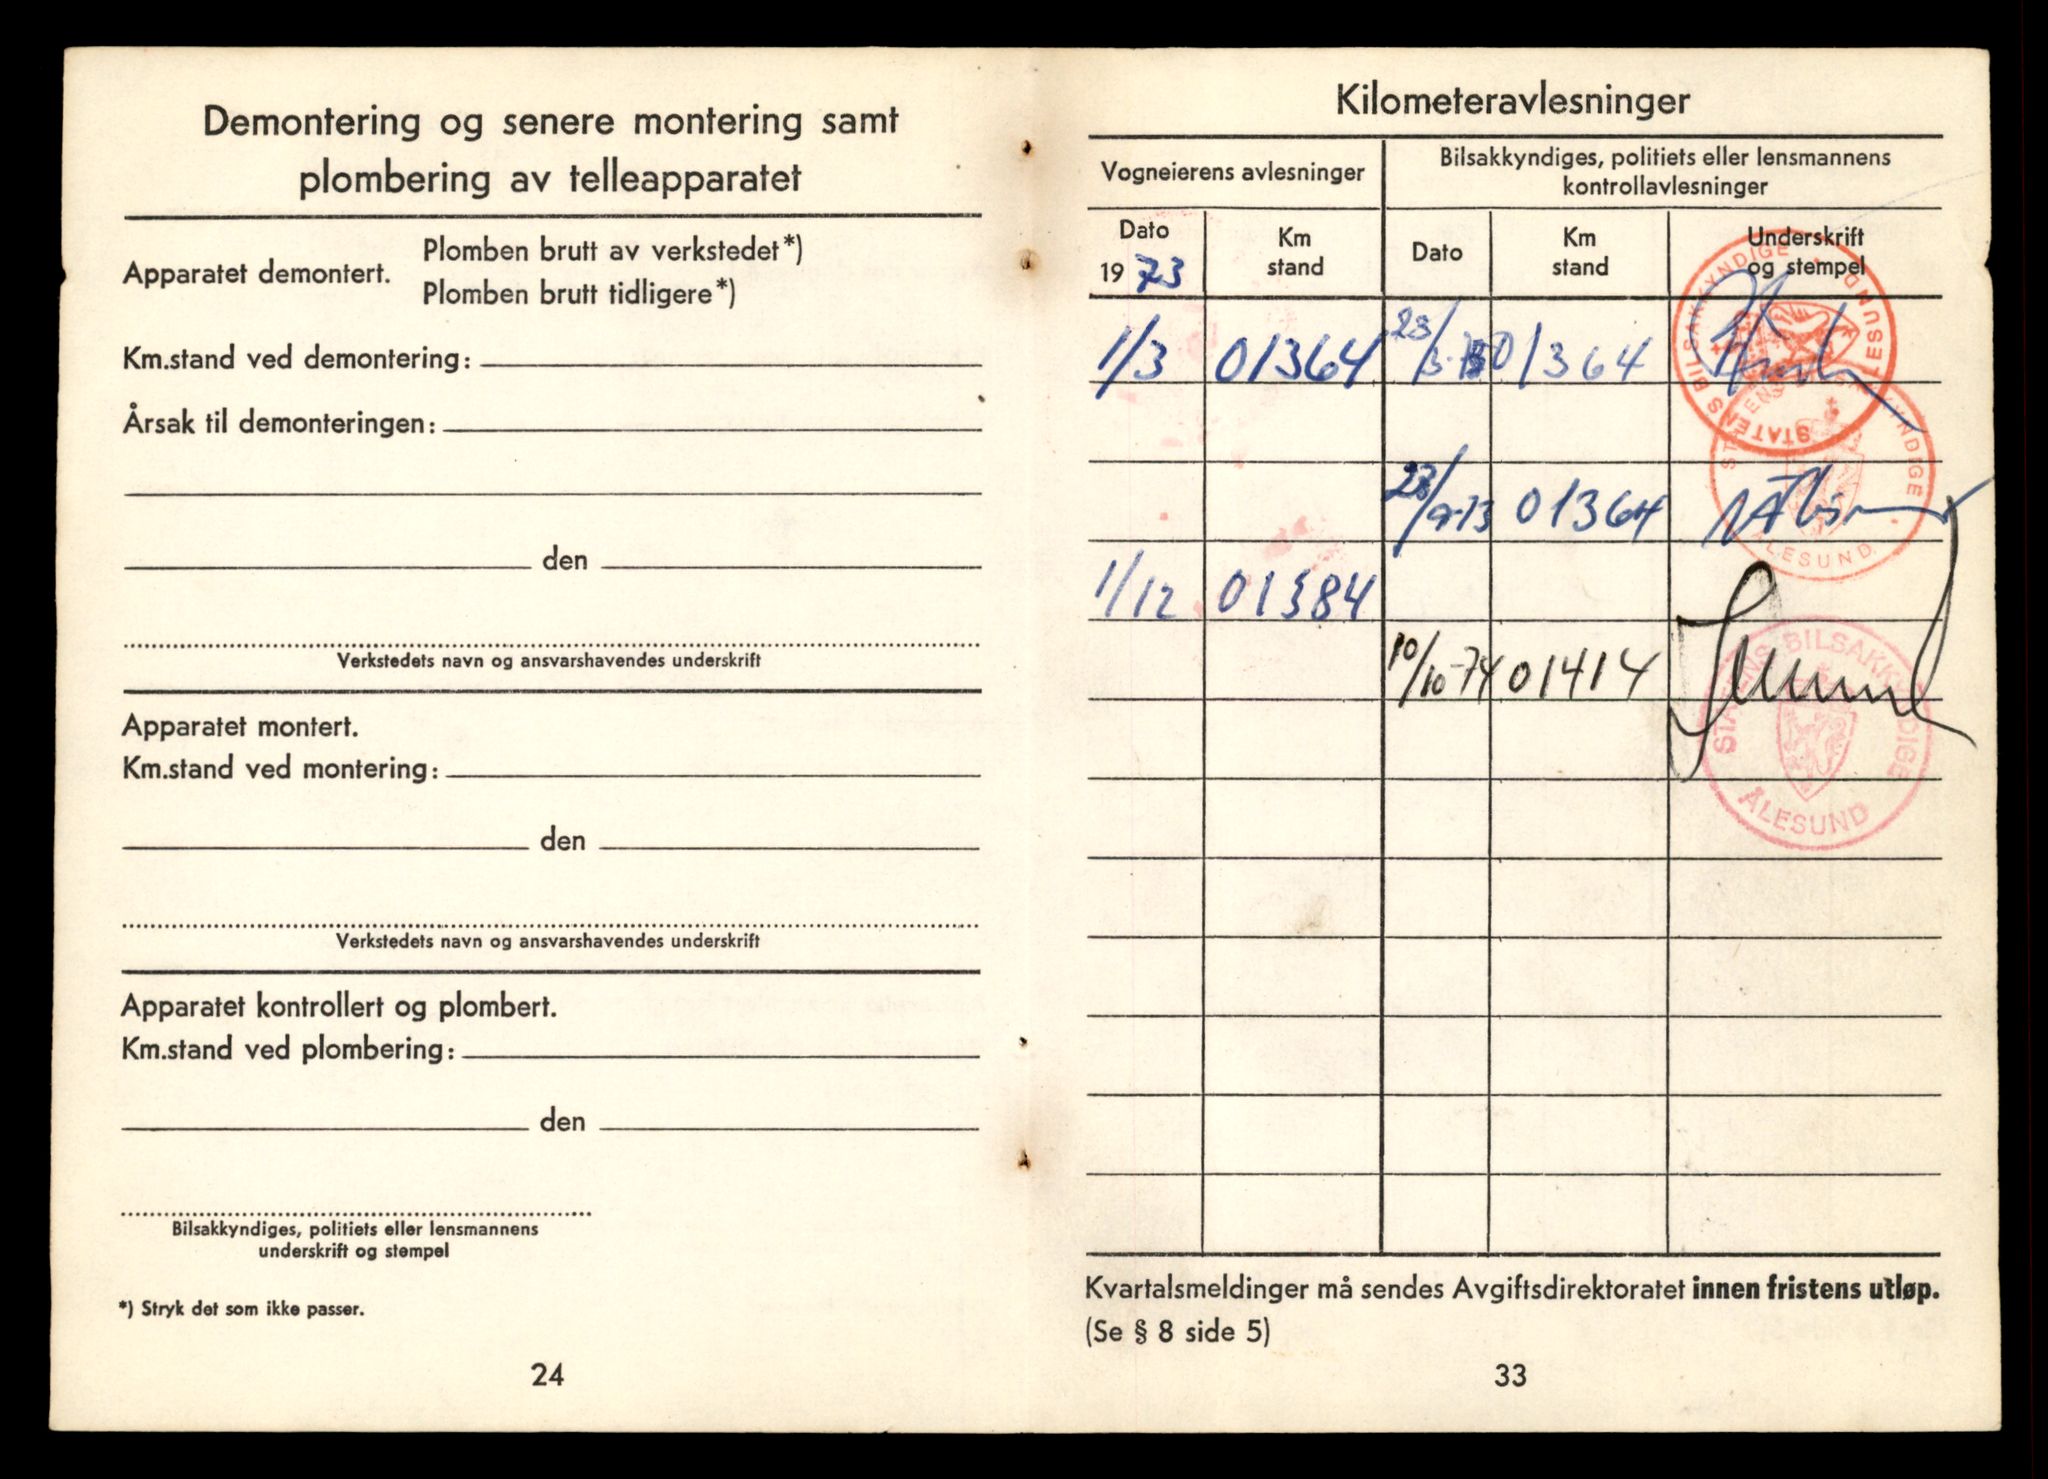 Demontering og senere montering samt
plombering av telleapparatet
Apparatet demontert.
Plomben brutt av verkstedet*)
Plomben brutt tidligere*)
Km.stand ved demontering:
Årsak til demonteringen:
den
Verkstedets navn og ansvarshavendes underskrift
Apparatet montert.
Km.stand ved montering:
den
Verkstedets navn og ansvarshavendes underskrift
Apparatet kontrollert og plombert.
Km.stand ved plombering:
den
Bilsakkyndiges, politiets eller lensmannens
underskrift og stempel
*) Stryk det som ikke passer.
24
Kilometeravlesninger
Vogneierens avlesninger
Bilsakkyndiges, politiets eller lensmannens
kontrollavlesninger
Dato
1973
Km
stand
Dato
Km
stand
Underskrift
og stempel
STATENS BILSAKKYNDIGE ÅLESUND
1/3 01364 01364
23/9-73 01364
STATENS BILSAKKYNDIGE ÅLESUND
1/12 01384
10/10-74 01414
STATENS BILSAKKYNDIGE ÅLESUND
Kvartalsmeldinger må sendes Avgiftsdirektoratet innen fristens utløp.
(Se § 8 side 5)
33